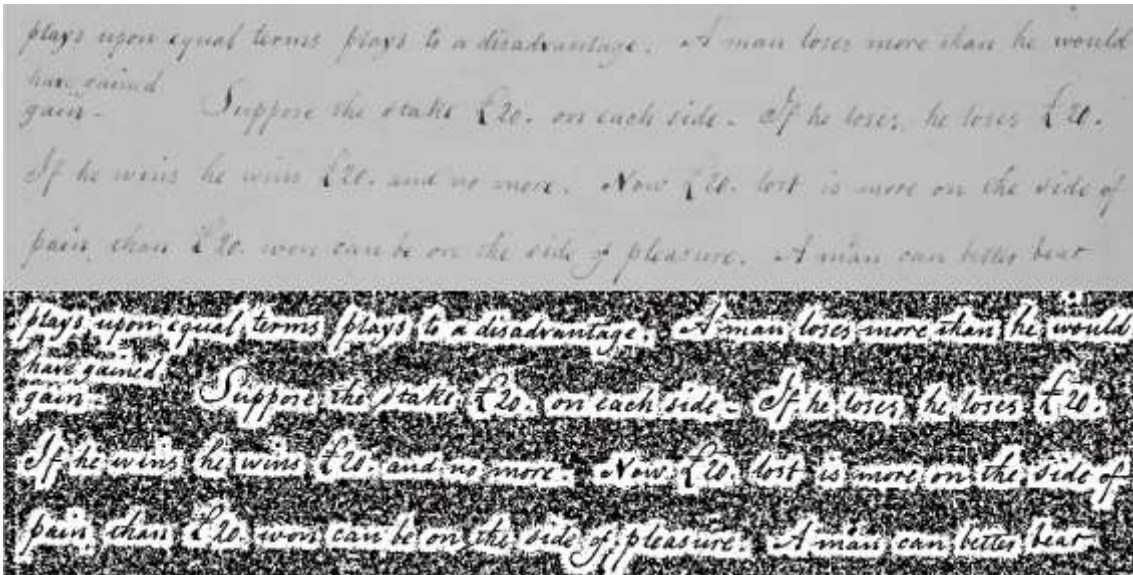 plays upon equal terms plays to a disadvantage. A man loses more than he would
have gained
gain. Suppose the stake £20. on each side. If he loses, he loses £20.
If he wins he wins £20. and no more. Now £20. lost is more on the side of
pain, than £20. won can be on the side of pleasure. A man can better bear
plays upon equal terms plays to a disadvantage. A man loses more than he would
have gained
gain. Suppose the stake £20. on each side. If he loses, he loses £20.
If he wins he wins £20. and no more. Now £20. lost is more on the side of
pain, than £20. won can be on the side of pleasure. A man can better bear